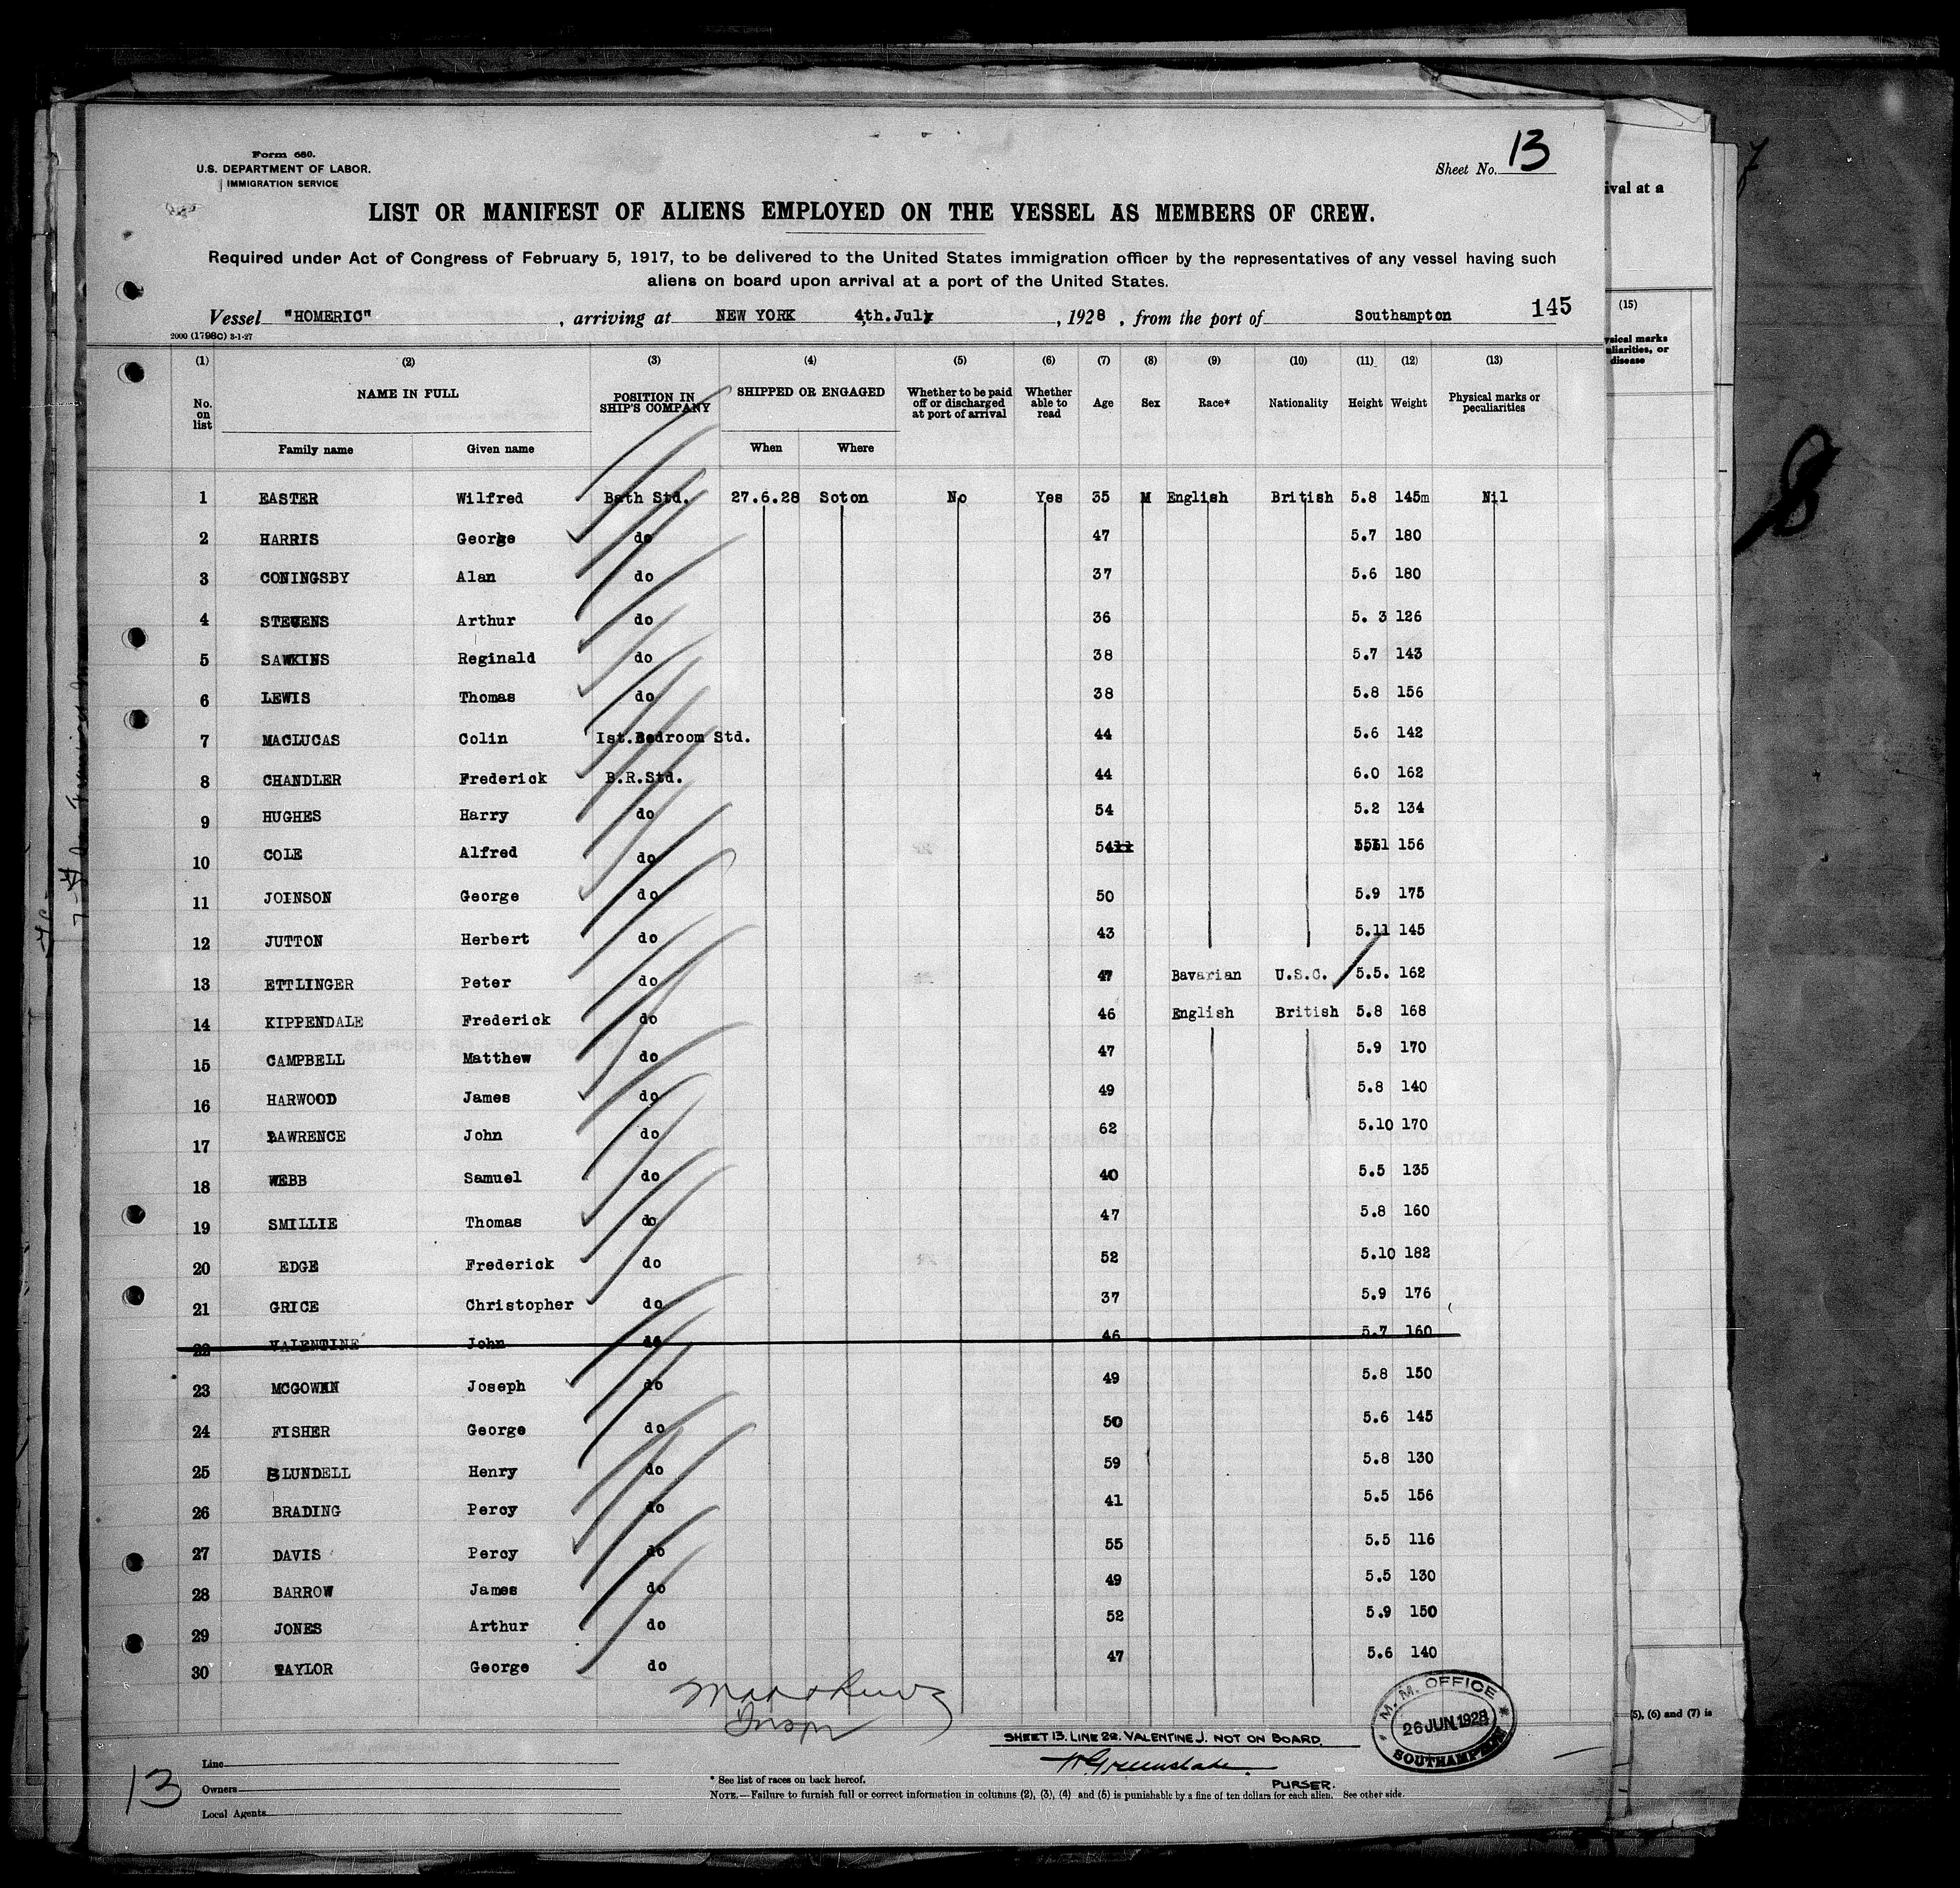 Form 680.
U.S. DEPARTMENT OF LABOR.
IMMIGRATION SERVICE
Sheet No. 13
LIST OR MANIFEST OF ALIENS EMPLOYED ON THE VESSEL AS MEMBERS OF CREW.
Required under Act of Congress of February 5, 1917, to be delivered to the United States immigration officer by the representatives of any vessel having such
aliens on board upon arrival at a port of the United States.
Vessel "HOMERIC", arriving at NEW YORK 4th.July, 1928, from the port of Southampton 145
2000 (1798c) 3-1-27
(1) (2) (3) (4) (5) (6) (7) (8) (9) (10) (11) (12) (13)
No. on list NAME IN FULL POSITION IN SHIP'S COMPANY SHIPPED OR ENGAGED Whether to be paid off or discharged at port of arrival Whether able to read Age Sex Race* Nationality Height Weight Physical marks or peculiarities
Family name Given name When Where
1 EASTER Wilfred Bath Std. 27.6.28 Soton No Yes 35 M English British 5.8 145m Nil
2 HARRIS George do 47 5.7 180
3 CONINGSBY Alan do 37 5.6 180
4 STEVENS Arthur do 36 5. 3 126
5 SAWKINS Reginald do 38 5.7 143
6 LEWIS Thomas do 38 5.8 156
7 MACLUCAS Colin Ist.Bedroom Std. 44 5.6 142
8 CHANDLER Frederick B.R.Std. 44 6.0 162
9 HUGHES Harry do 54 5.2 134
10 COLE Alfred do 54 156
11 JOINSON George do 50 5.9 175
12 JUTTON Herbert do 43 5.11 145
13 ETTLINGER Peter do 47 Bavarian U.S.C. 5.5. 162
14 KIPPENDALE Frederick do 46 English British 5.8 168
15 CAMPBELL Matthew do 47 5.9 170
16 HARWOOD James do 49 5.8 140
17 LAWRENCE John do 62 5.10 170
18 WEBB Samuel do 40 5.5 135
19 SMILLIE Thomas do 47 5.8 160
20 EDGE Frederick do 52 5.10 182
21 GRICE Christopher do 37 5.9 176
22 VALENTINE John do 46 5.7 160
23 MCGOWAN Joseph do 49 5.8 150
24 FISHER George do 50 5.6 145
25 BLUNDELL Henry do 59 5.8 130
26 BRADING Percy do 41 5.5 156
27 DAVIS Percy do 55 5.5 116
28 BARROW James do 49 5.5 130
29 JONES Arthur do 52 5.9 150
30 TAYLOR George do 47 5.6 140
M. M. OFFICE
26 JUN 1928
SOUTHAMPTON
SHEET 13. LINE 22. VALENTINE J. NOT ON BOARD.
PURSER.
13
Line
Owners
Local Agents
* See list of races on back hereof.
NOTE.—Failure to furnish full or correct information in columns (2), (3), (4) and (5) is punishable by a fine of ten dollars for each alien. See other side.
ival at a
(15)
disease
(5), (6) and (7) is